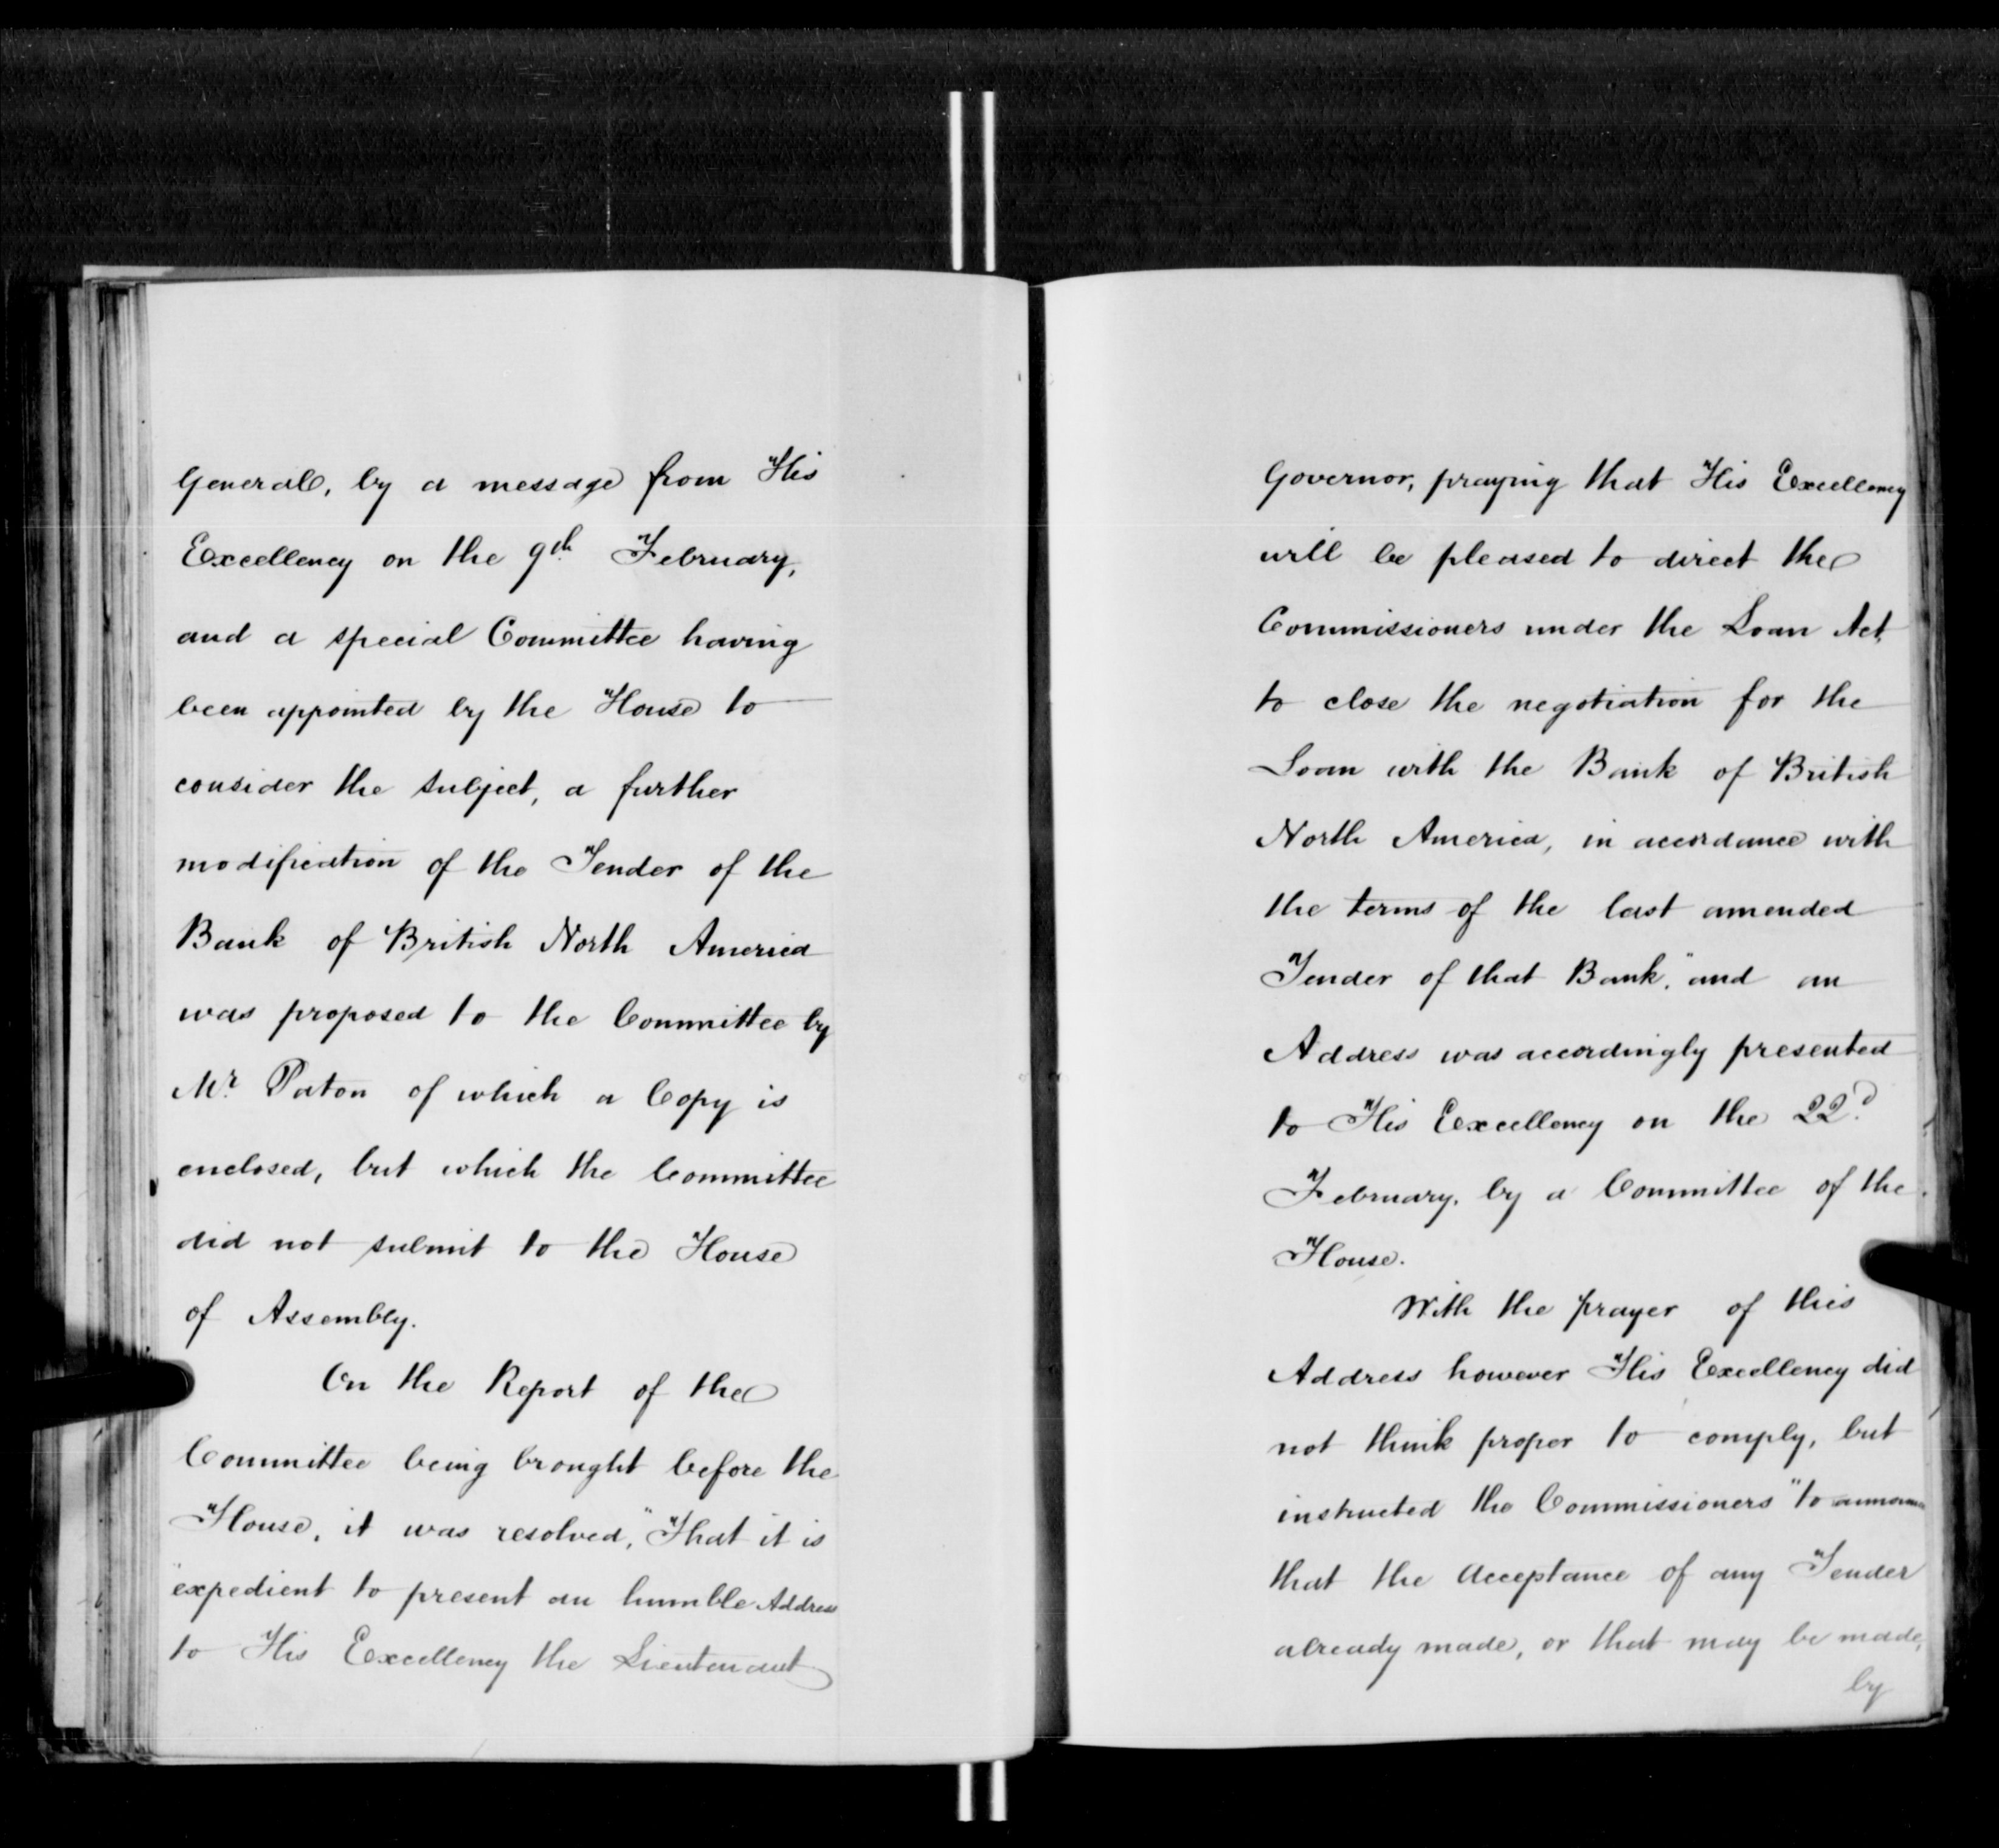 General, by a message from His
Excellency on the 9th February,
and a special Committee having
been appointed by the House to
consider the subject, a further
modification of the Tender of the
Bank of British North America
was proposed to the Committee by
Mr. Paton of which a Copy is
enclosed, but which the Committee
did not submit to the House
of Assembly.
On the Report of the
Committee being brought before the
House, it was resolved, "That it is
"expedient to present an humble Address
to His Excellency the Lieutenant
Governor, praying that His Excellency
will be pleased to direct the
Commissioners under the Loan Act,
to close the negotiation for the
Loan with the Bank of British
North America, in accordance with
the terms of the last amended
Tender of that Bank." and an
Address was accordingly presented
to His Excellency on the 22d
February, by a Committee of the
House.
With the prayer of this
Address however His Excellency did
not think proper to comply, but
instructed the Commissioners "to announce
that the acceptance of any Tender
already made, or that may be made,
by